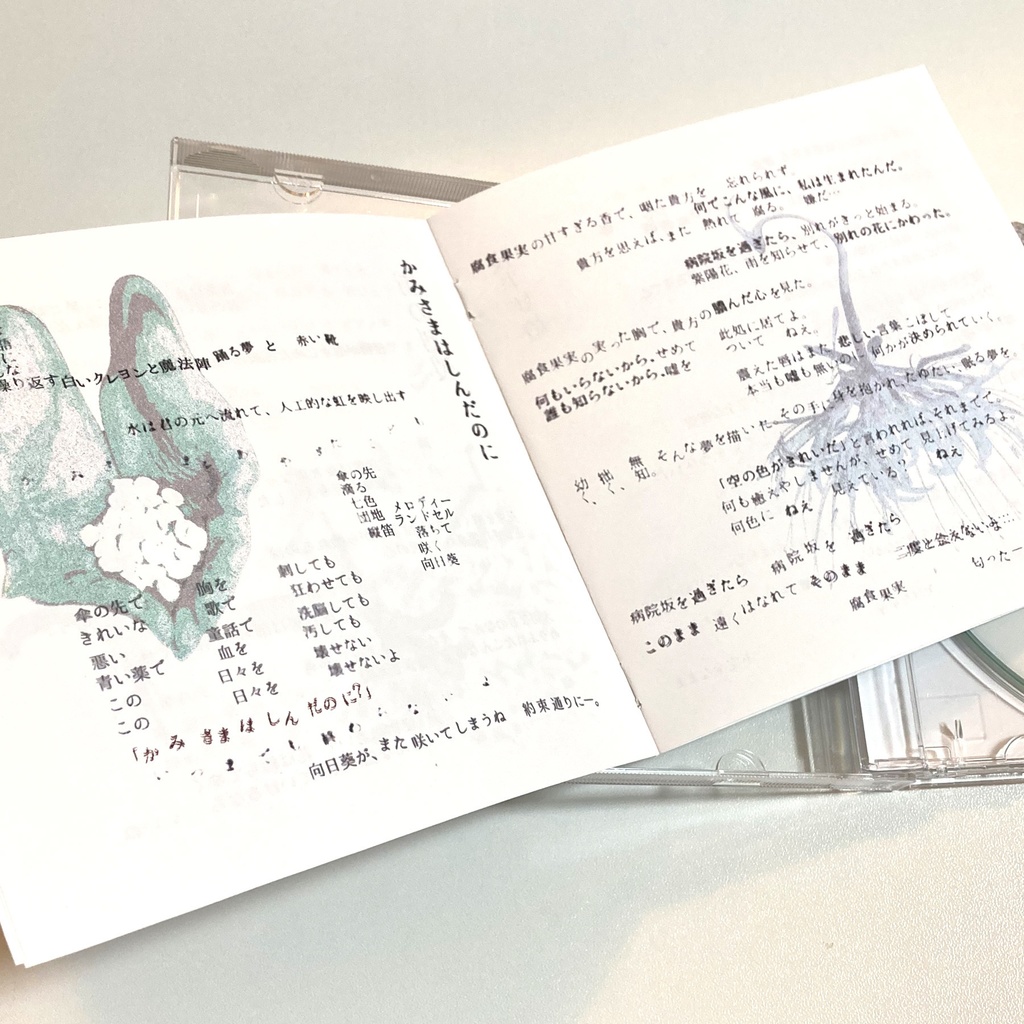 かみさまはしんだのに
繰り返す白いクレヨンと魔法陣 踊る夢 と 赤い靴
水は君の元へ流れて、人工的な虹を映し出す
傘の先
滴る
七色 メロディー
団地 ランドセル
縦笛 落ちて
咲く
向日葵
傘の先で 胸を 刺しても
きれいな 歌で 狂わせても
悪い 童話で 洗脳しても
青い薬で 血を 汚しても
この 日々を 壊せない
この 日々を 壊せないよ
「かみさまはしんだのに?」
向日葵が、また咲いてしまうね 約束通りに―。
腐食果実の甘すぎる香で、咽た貴方を 忘れられず。
何でこんな風に、私は生まれたんだ。
貴方を思えば、また 熱れて 腐る。 嫌だ…
病院坂を過ぎたら、別れがきっと始まる。
紫陽花、雨を知らせて、別れの花にかわった。
腐食果実の実った胸で、貴方の病んだ心を見た。
何もいらないから、せめて 此処に居てよ。
誰も知らないから、嘘を ついて ねぇ。
震えた唇はまた 悲しい言葉こぼして
本当も嘘も無いのに 何かが決められていく。
幼く、拙く、無知。そんな夢を描いた その手に身を抱かれ、たゆたい、眠る夢を。
「空の色がきれいだ」と言われれば、それまでで
何も癒えやしませんが、せめて 見上げてみるよ。
何色に ねえ 見えている? ねえ
病院坂を過ぎたら 病院坂を 過ぎたら
このまま 遠くはなれて そのまま 二度と会えないよ……
腐食果実 匂った―